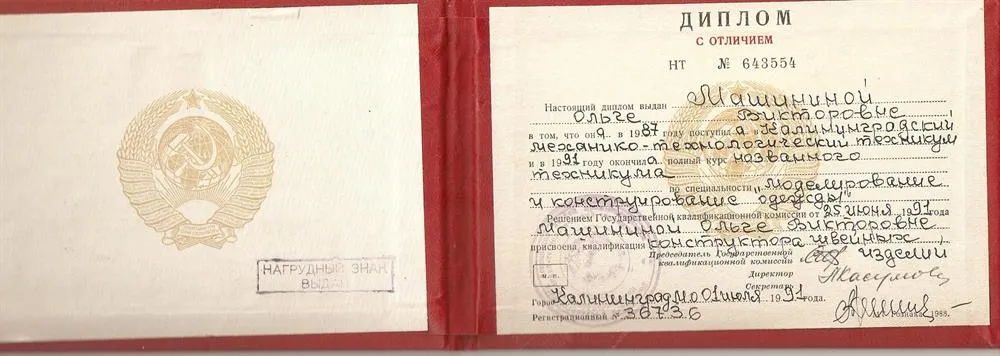 НАГРУДНЫЙ ЗНАК
ВЫДАН
ДИПЛОМ
С ОТЛИЧИЕМ
НТ № 643554
Настоящий диплом выдан Машининой
Ольге Викторовне
в том, что она в 1987 году поступила в Калининградский
механико-технологический техникум
и в 1991 году окончила полный курс названного
техникума
по специальности „моделирование
и конструирование одежды"
Решением Государственной квалификационной комиссии от 25 июня 1991 года
Машининой Ольге Викторовне
присвоена квалификация конструктора швейных
изделий
Председатель Государственной
квалификационной комиссии
Директор
Секретарь
М.П.
Город Калининград МО 01 июля 1991 года.
Регистрационный № 36736
Гознак. 1988.